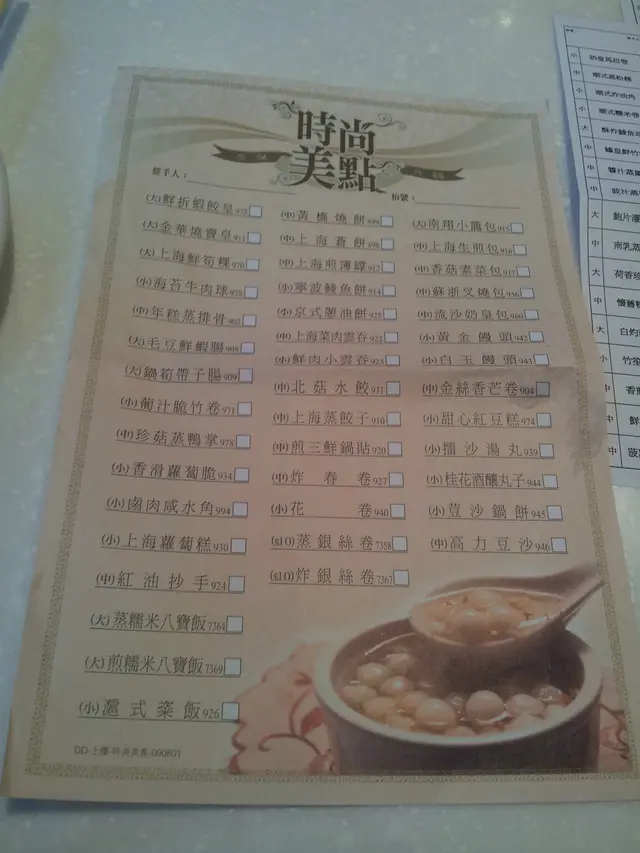 時尚
美點
經手人：
枱號：
(大)鮮拆蝦餃皇973
(大)金華燒賣皇911
(大)上海鮮筍粿970
(小)海苔牛肉球978
(中)年糕蒸排骨902
(大)毛豆鮮蝦腸909
(大)鍋筍帶子腸909
(小)葡汁脆竹卷971
(中)珍菇蒸鴨掌978
(小)香滑蘿蔔脆934
(小)鹵肉咸水角994
(小)上海蘿蔔糕930
(中)紅油抄手924
(大)蒸糯米八寶飯7364
(大)煎糯米八寶飯7369
(小)滬式粢飯926
(中)黃橋燒餅899
(中)上海蒼餅898
(中)上海煎薄罉912
(小)寧波鯪魚餅914
(小)京式蔥油餅925
(中)上海菜肉雲吞922
(小)鮮肉小雲吞923
(中)北菇水餃931
(中)上海蒸餃子910
(中)煎三鮮鍋貼920
(中)炸春卷927
(小)花卷940
(s10)蒸銀絲卷7358
(s10)炸銀絲卷7367
(大)南翔小籠包915
(中)上海生煎包916
(中)香菇素菜包917
(中)蘇浙叉燒包936
(中)流沙奶皇包960
(小)黃金饅頭942
(小)白玉饅頭943
(中)金絲香芒卷904
(小)甜心紅豆糕974
(小)擂沙湯丸939
(小)桂花酒釀丸子944
(小)荳沙鍋餅945
(中)高力豆沙946
DD-上樓-時尚美點-090801
小
中
小 潮式炸油角
小 潮式糯米卷
大 酥炸鯪魚
中
中
中
大
中
大 荷香珍
中
大 白灼
小 竹笙
中
中 鮮
中